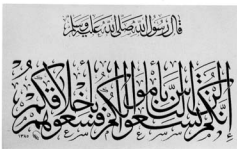 قال رسول الله صلى الله عليه وسلم
إنكم لن تسعوا الناس بأموالكم فسعوهم بأخلاقكم